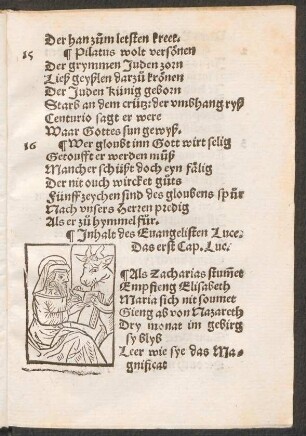 Der han zům letsten kreet.
15 ¶ Pilatus wolt versönen
Der grymmen Juden zorn
Ließ geyßlen darzů krönen
Der Juden Künig geborn
Starb an dem crütz: der vmbhang ryß
Centurio sagt er were
Waar Gottes sun gewyß.
16 ¶ Wer gloubt inn Gott wirt selig
Getoufft er werden můß
Mancher schüßt doch eyn fälig
Der nit ouch wircket gůts
Fünff zeychen sind des gloubens spůr
Nach vnsers Herren predig
Als er zů hymmel für.
¶ Inhalt des Euangelisten Luce.
Das erst Cap. Luc.
¶ Als Zacharias stumet
Empfieng Elisabeth
Maria sich nit soumet
Gieng ab von Nazareth
Dry monat im gebirg
sy blyb
Leer wie sye das Ma-
gnificat